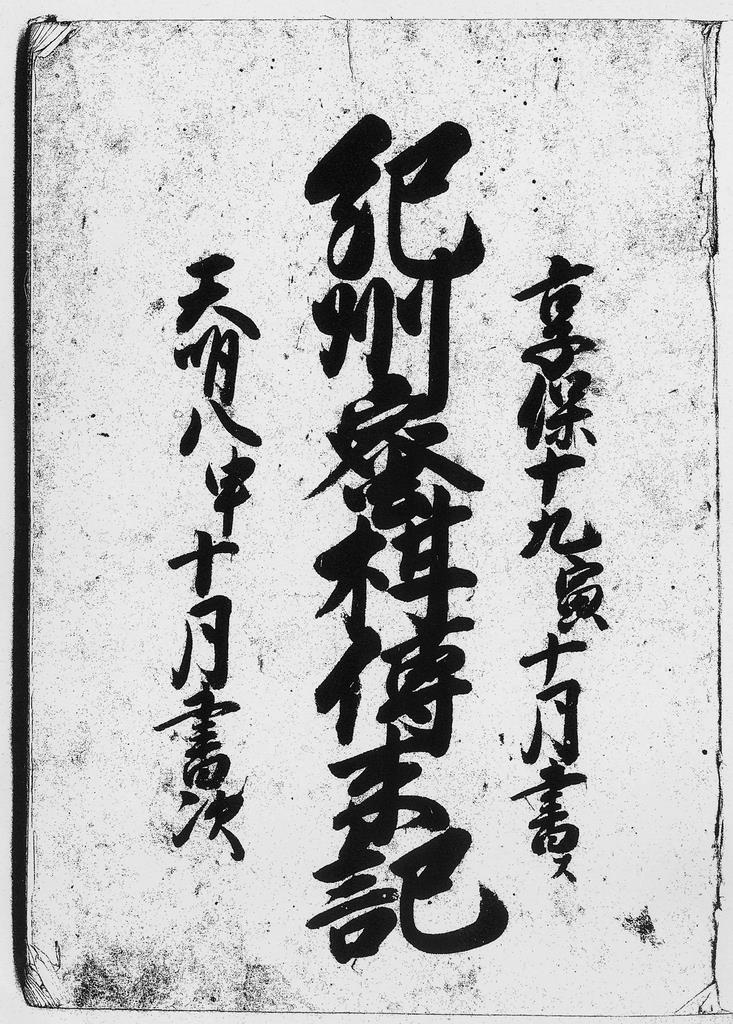 享保十九寅十月書ス
紀州蜜柑傳来記
天明八申十月書次